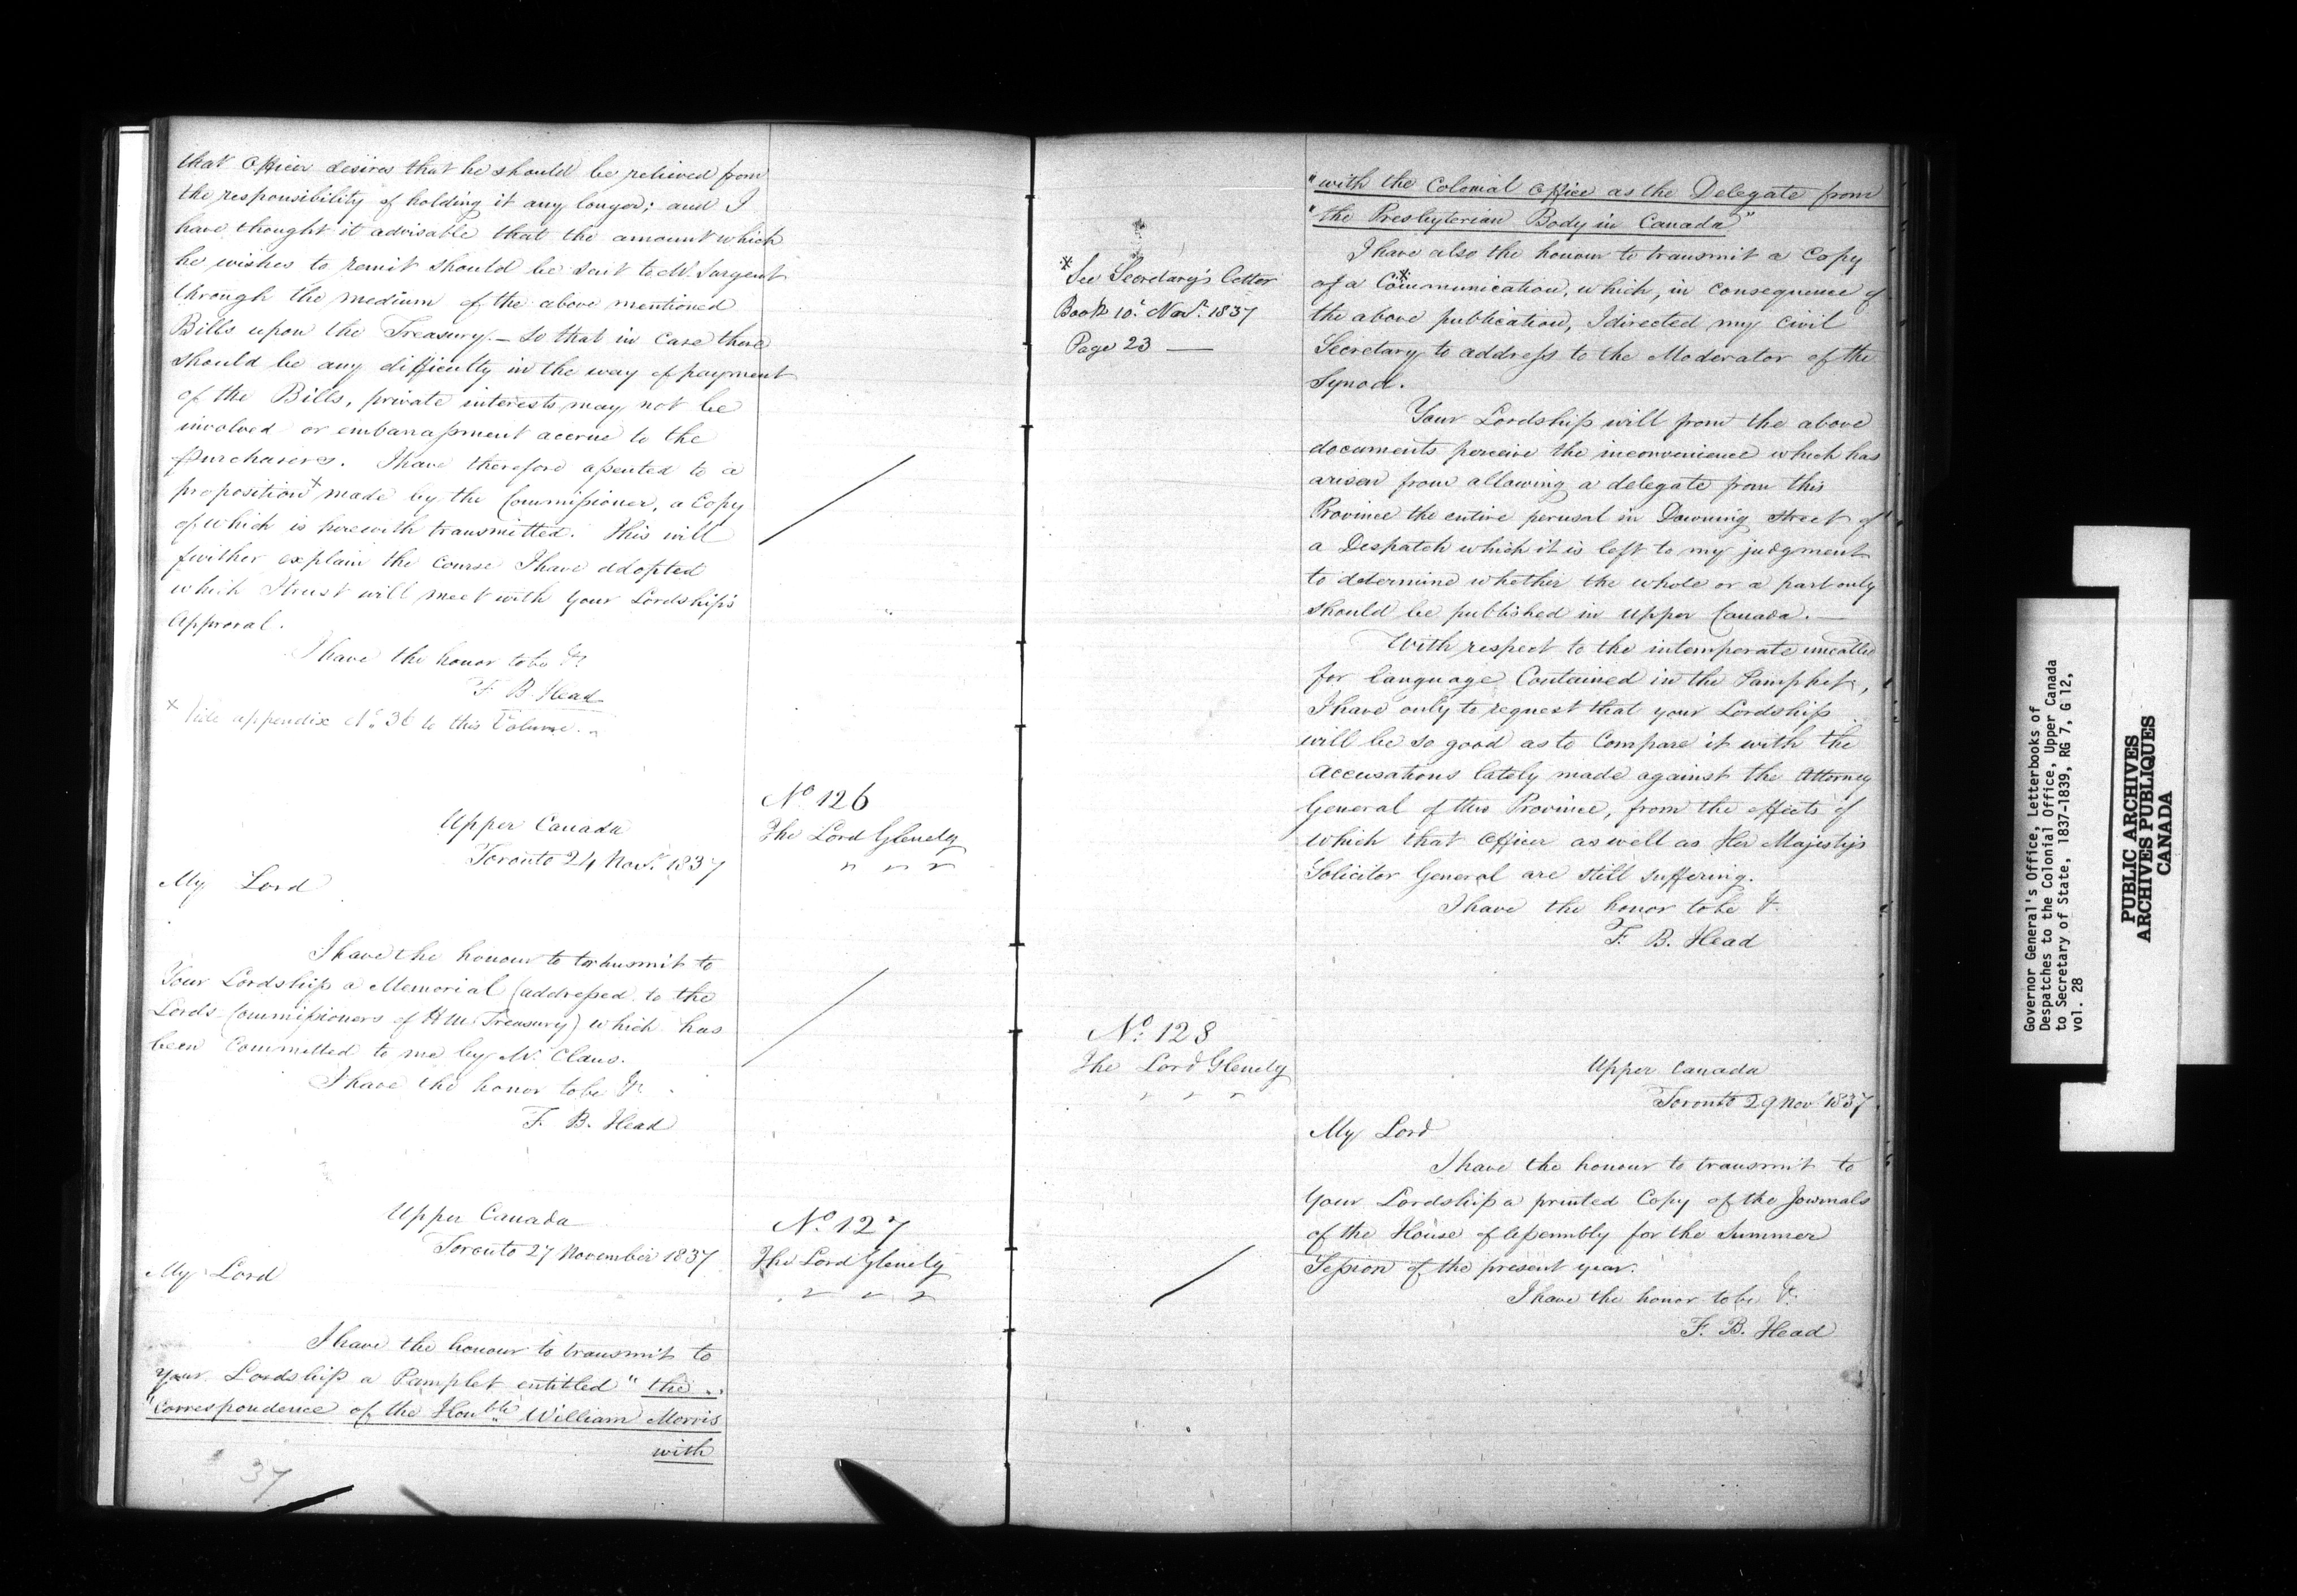 that Officer desires that he should be relieved from
the responsibility of holding it any longer; and I
have thought it advisable that the amount which
he wishes to remit should be sent to Mr. Sargent
through the medium of the above mentioned
Bills upon the Treasury. – So that in case there
should be any difficulty in the way of payment
of the Bills, private interests may not be
involved or embarrassment accrue to the
purchasers. I have therefore assented to a
proposition x made by the Commissioner, a Copy
of which is herewith transmitted. This will
further explain the course I have adopted
which I trust will meet with your Lordship's
Approval.
I have the honor to be &c
F. B. Head
x Vide appendix No. 36 to this Volume.
No 126
The Lord Glenelg
" " "
Upper Canada
Toronto 24 Novr. 1837
My Lord
I have the honour to transmit to
Your Lordship a Memorial (addressed to the
Lords Commissioners of H M Treasury) which has
been Committed to me by Mr. Claus.
I have the honor to be &c
F. B. Head
No. 127
The Lord Glenelg
" " "
Upper Canada
Toronto 27 November 1837
My Lord
I have the honour to transmit to
your Lordship a Pamplet entitled "the
"Correspondence of the Honble William Morris
with
37
"with the Colonial Office as the Delegate from
"the Presbyterian Body in Canada"
I have also the honour to transmit a Copy
of a Communication, * which, in consequence of
the above publication, I directed my Civil
Secretary to address to the Moderator of the
Synod.
* See Secretary's letter
Book 10. Novr. 1837
Page 23 —
Your Lordship will from the above
documents perceive the inconvenience which has
arisen from allowing a delegate from this
Province the entire perusal in Downing Street of
a Despatch which it is left to my judgment
to determine whether the whole or a part only
should be published in Upper Canada. —
With respect to the intemperate uncalled
for language Contained in the Pamphet,
I have only to request that your Lordship
will be so good as to Compare it with the
accusations lately made against the Attorney
General of this Province, from the effects of
which that Officer as well as Her Majesty's
Solicitor General are still suffering.
I have the honor to be &c
F. B. Head
No. 128
The Lord Glenelg
" " "
Upper Canada
Toronto 29 Novr 1837.
My Lord
I have the honour to transmit to
Your Lordship a printed Copy of the Journals
of the House of Assembly for the Summer
Session of the present year.
I have the honor to be &c
F. B. Head
Governor General's Office, Letterbooks of
Despatches to the Colonial Office, Upper Canada
to Secretary of State, 1837-1839, RG 7, G 12,
vol. 28
PUBLIC ARCHIVES
ARCHIVES PUBLIQUES
CANADA